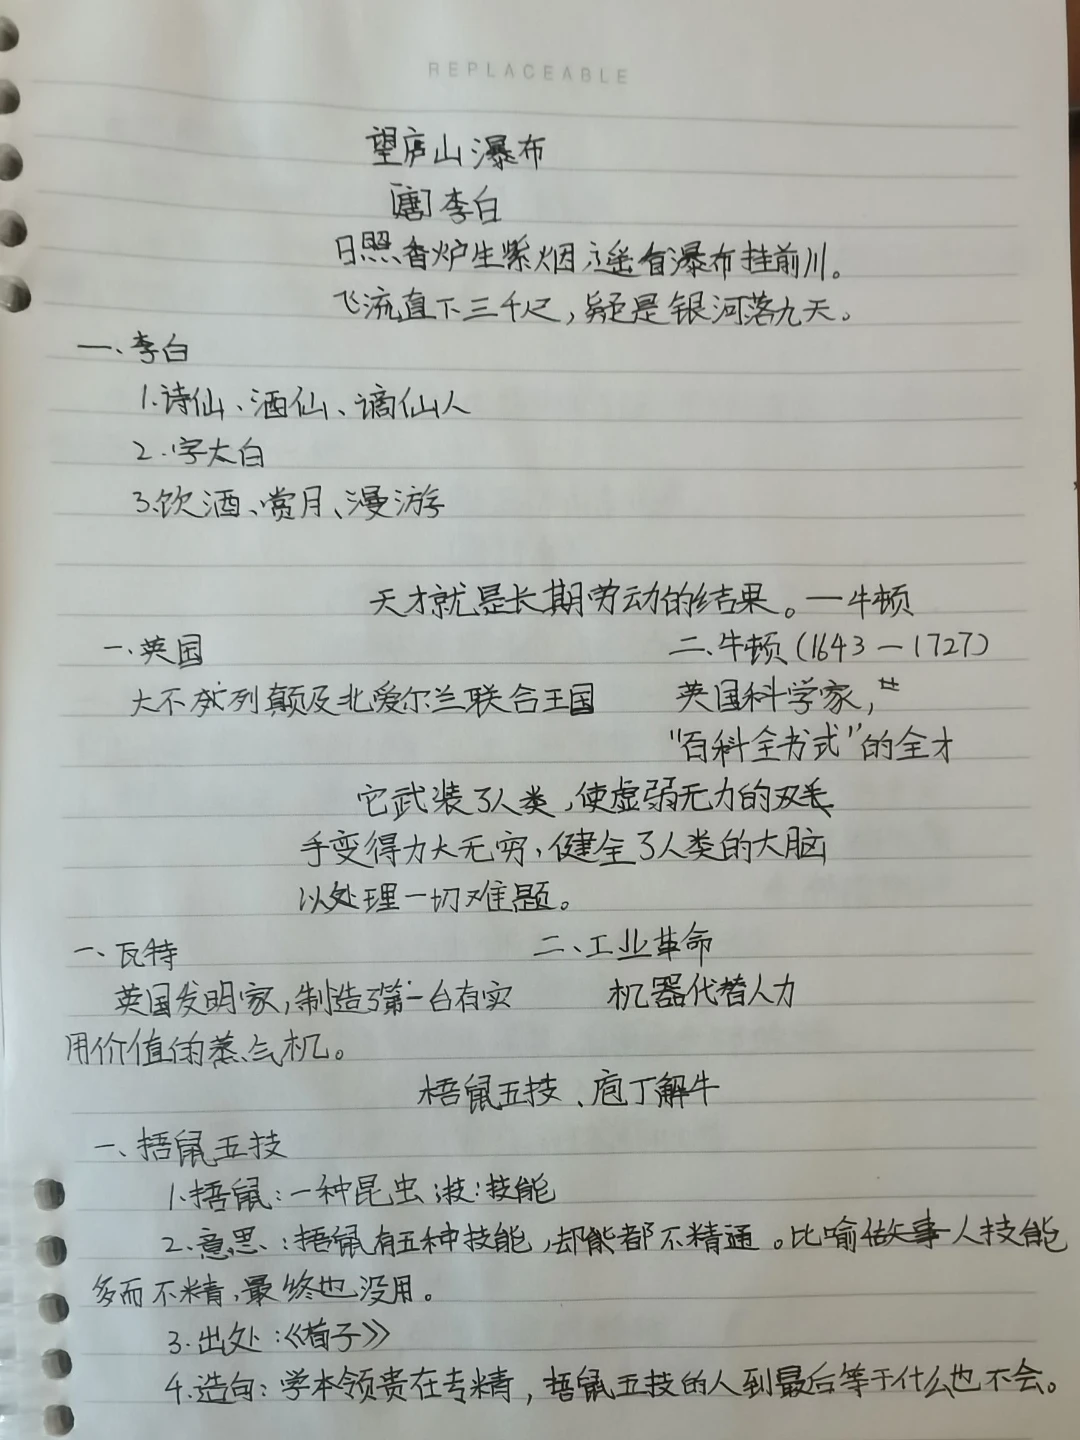 REPLACEABLE
望庐山瀑布
[唐]李白
日照香炉生紫烟,遥看瀑布挂前川。
飞流直下三千尺,疑是银河落九天。
一、李白
1.诗仙、酒仙、谪仙人
2.字太白
3.饮酒、赏月、漫游
天才就是长期劳动的结果。—牛顿
一.英国
二、牛顿(1643—1727)
大不列颠及北爱尔兰联合王国
英国科学家,
“百科全书式”的全才
它武装了人类,使虚弱无力的双
手变得力大无穷,健全了人类的大脑
以处理一切难题。
一、瓦特
二、工业革命
英国发明家,制造了第一台有实
机器代替人力
用价值的蒸气机。
梧鼠五技、庖丁解牛
一、捂鼠五技
1.捂鼠:一种昆虫;技:技能
2.意思:捂鼠有五种技能,却能都不精通。比喻做事人技能
多而不精,最终也没用。
3.出处:《荀子》
4.造句:学本领贵在专精,捂鼠五技的人到最后等于什么也不会。